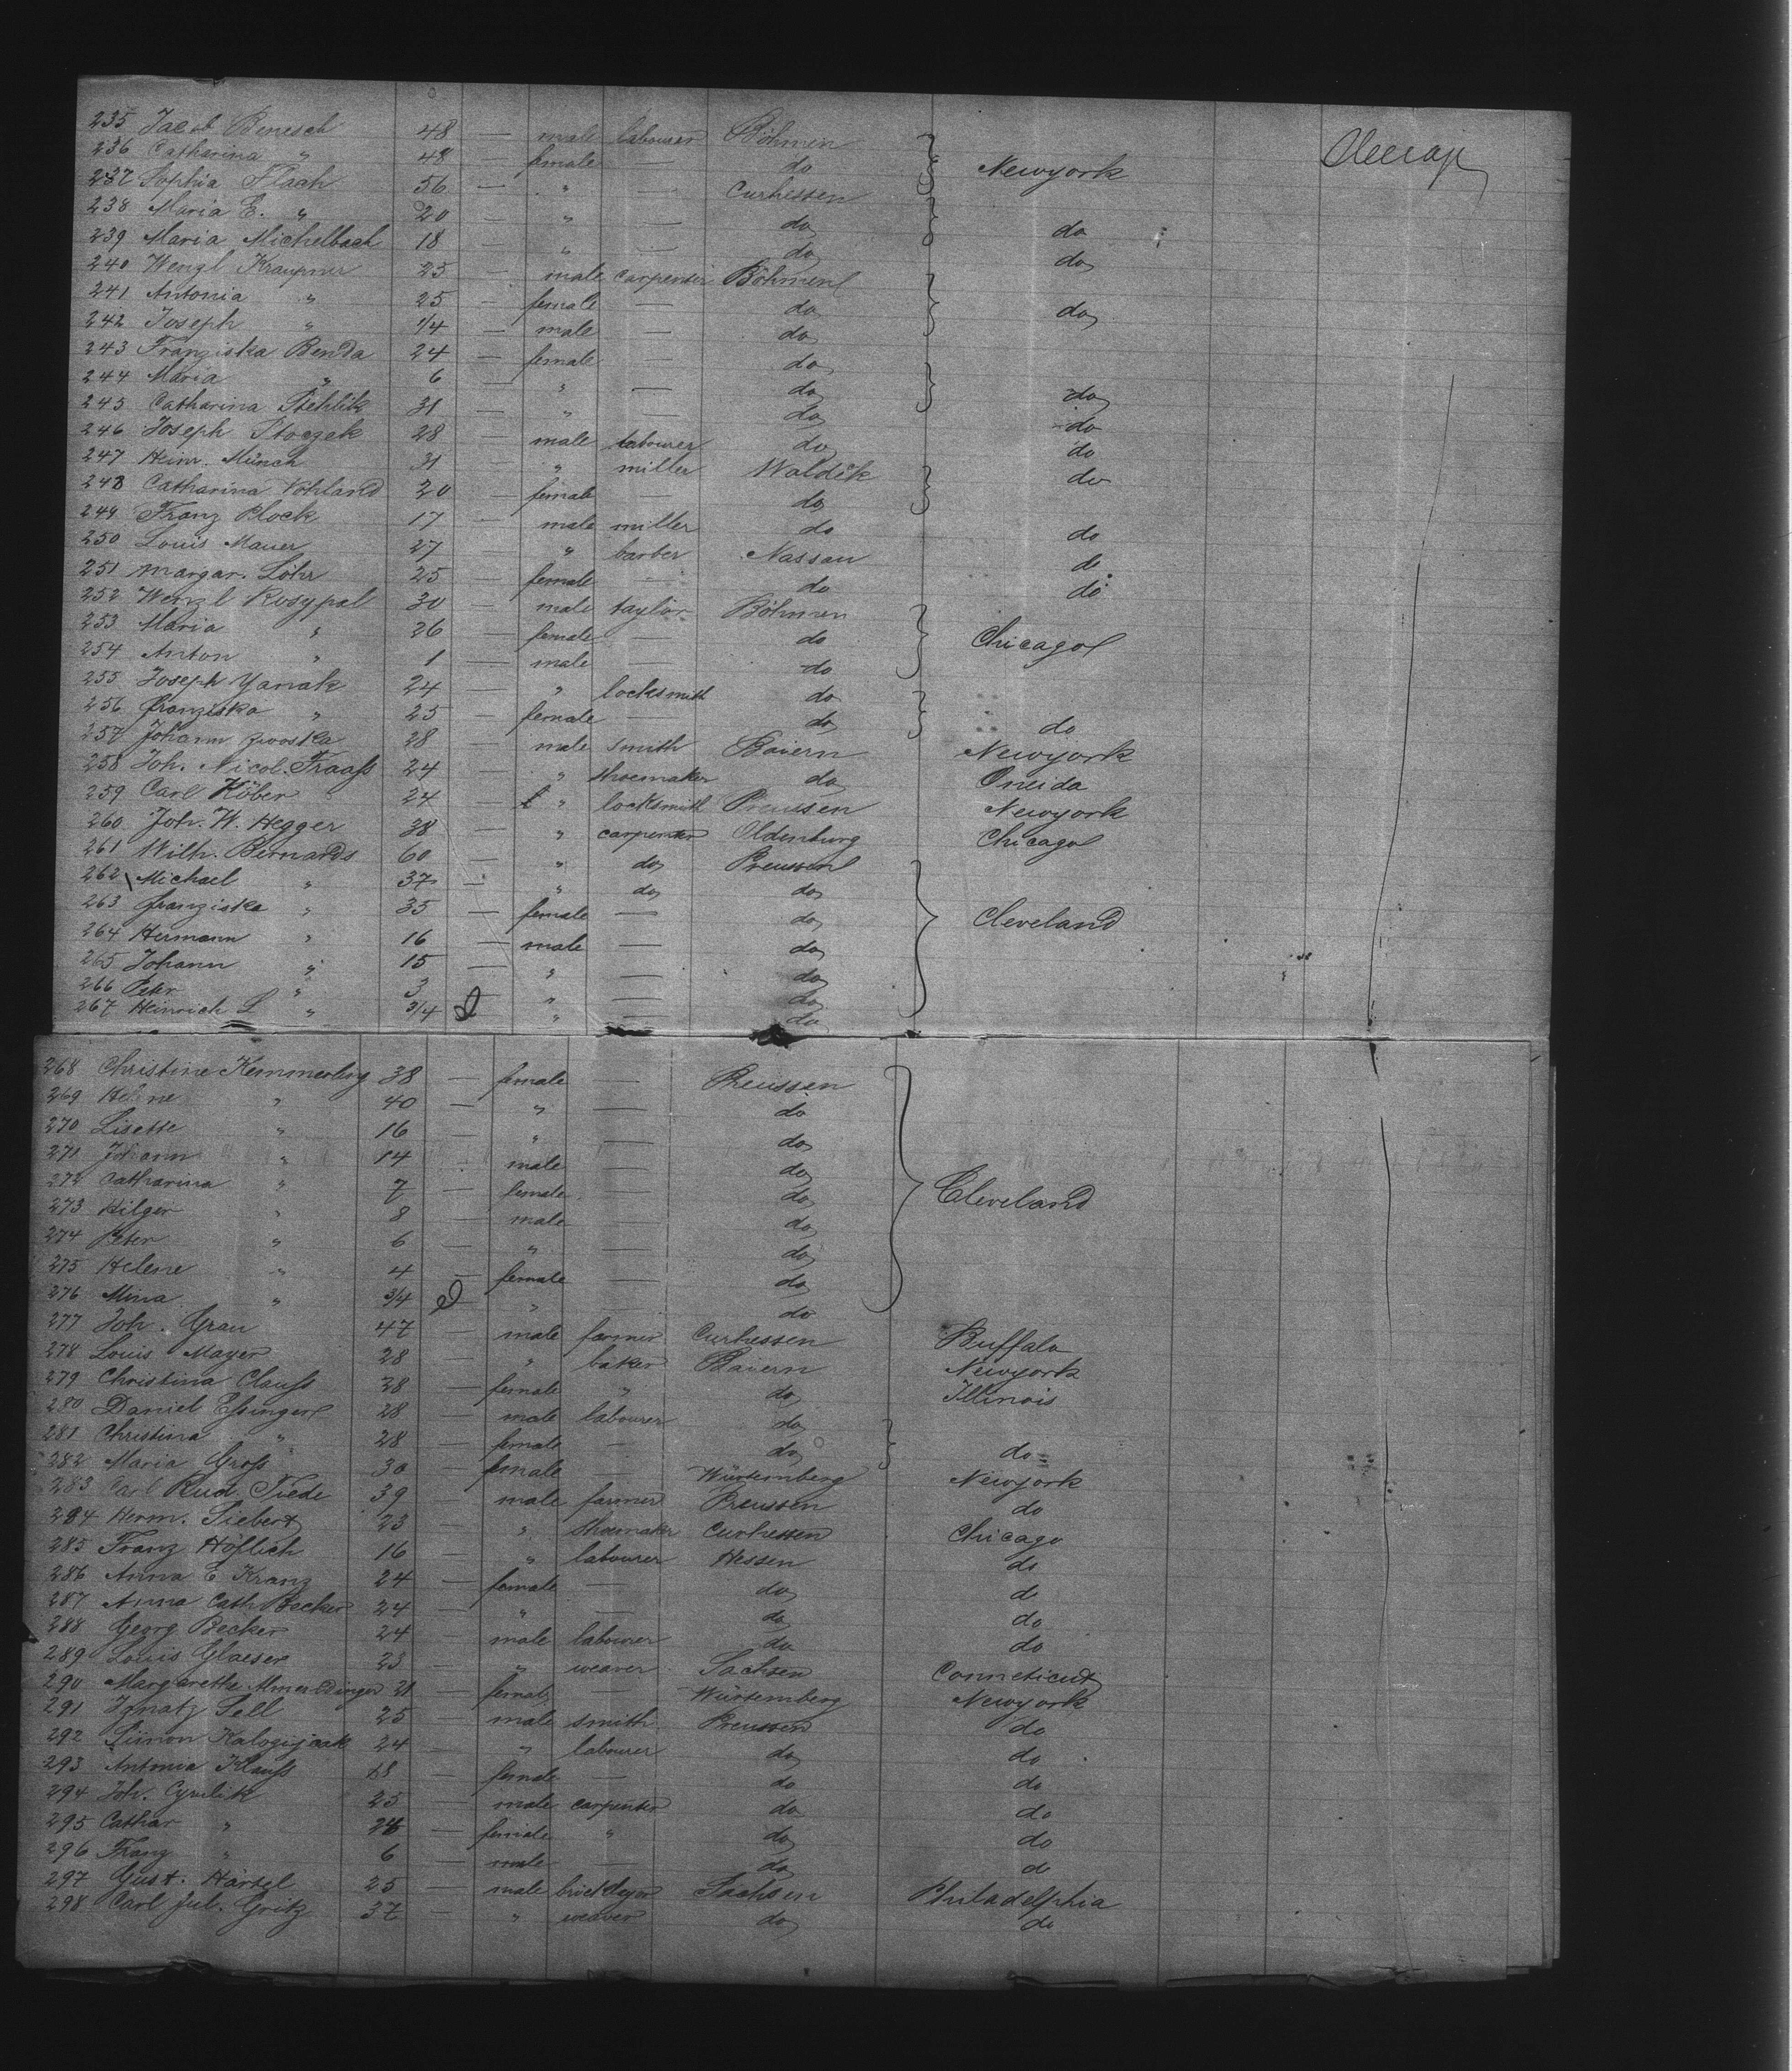 235 Jacob Benesch 48 — male labourer Böhmen
236 Catharina " 48 female — do Newyork
237 Sophia Flach 56 — " — Curhessen
238 Maria E. " 20 " — do do
239 Maria Michelbach 18 — " — do do
240 Wenzl Kraupner 25 — male carpenter Böhmen
241 Antonia " 25 — female — do do
242 Joseph " 1/4 — male — do
243 Franziska Benda 24 — female — do
244 Maria " 6 — " — do do
245 Catharina Stehlik 31 — " — do do
246 Joseph Stoczek 28 — male labourer do do
247 Heinr. Münch 31 — " miller Waldek do
248 Catharina Vohland 20 — female — do
249 Franz Block 17 — male miller do do
250 Louis Mauer 27 — " barber Nassau do
251 Margar. Löhr 25 — female — do do
252 Wenzl Rosypal 30 — male taylor Böhmen
253 Maria " 26 — female — do Chicago
254 Anton " 1 — male — do
255 Joseph Yanak 24 — " locksmith do
256 Franziska " 25 — female — do do
257 Johann 28 — male smith Baiern Newyork
258 Joh. Nicol. Fraass 24 — " shoemaker do Oneida
259 Carl Köber 24 — " locksmith Preussen Newyork
260 Joh. W. Hegger 38 — " carpenter Oldenburg Chicago
261 Wilh. Bernards 60 — " do Preussen
262 Michael " 37 — " do do
263 Franziska " 35 — female — do Cleveland
264 Hermann " 16 — male — do
265 Johann " 15 — " — do
266 Peter " 3 — " — do
267 Heinrich L " 3/4 " — do
268 Christine Kemmerling 38 — female — Preussen
269 Helene " 40 — " — do
270 Lisette " 16 — " — do
271 Johann " 14 male — do
272 Catharina " 7 — female — do Cleveland
273 Hilger " 8 — male — do
274 Peter " 6 — " — do
275 Helene " 4 — female — do
276 Mina " 3/4 — " — do
277 Joh. Grau 47 — male farmer Curhessen Buffalo
278 Louis Mayer 28 — " baker Baiern Newyork
279 Christina Clauss 28 — female " do Illinois
280 Daniel Essinger 28 — male labourer do
281 Christina " 28 — female — do do
282 Maria Gross 30 — female — Würtemberg Newyork
283 Carl Rud. Tiede 39 — male farmer Preussen do
284 Herm. Siebert 23 — " shoemaker Curhessen Chicago
285 Franz Höflich 16 — " labourer Hessen do
286 Anna E Kranz 24 — female — do do
287 Anna Cath Becker 24 — " — do do
288 Georg Becker 24 — male labourer do do
289 Louis Glaeser 23 — " weaver Sachsen Conneticut
290 Margarethe 21 — female — Würtemberg Newyork
291 Ignatz Sell 25 — male smith Preussen do
292 Simon 24 — " labourer do do
293 Antonia Klauss 18 — female — do do
294 Joh. 25 — male carpenter do do
295 Cathar " — female " do do
296 Franz " 6 — male — do do
297 Gust. Härtel 25 — male bricklayer Sachsen Philadelphia
298 Carl Jul. Gritz 37 — " weaver do do